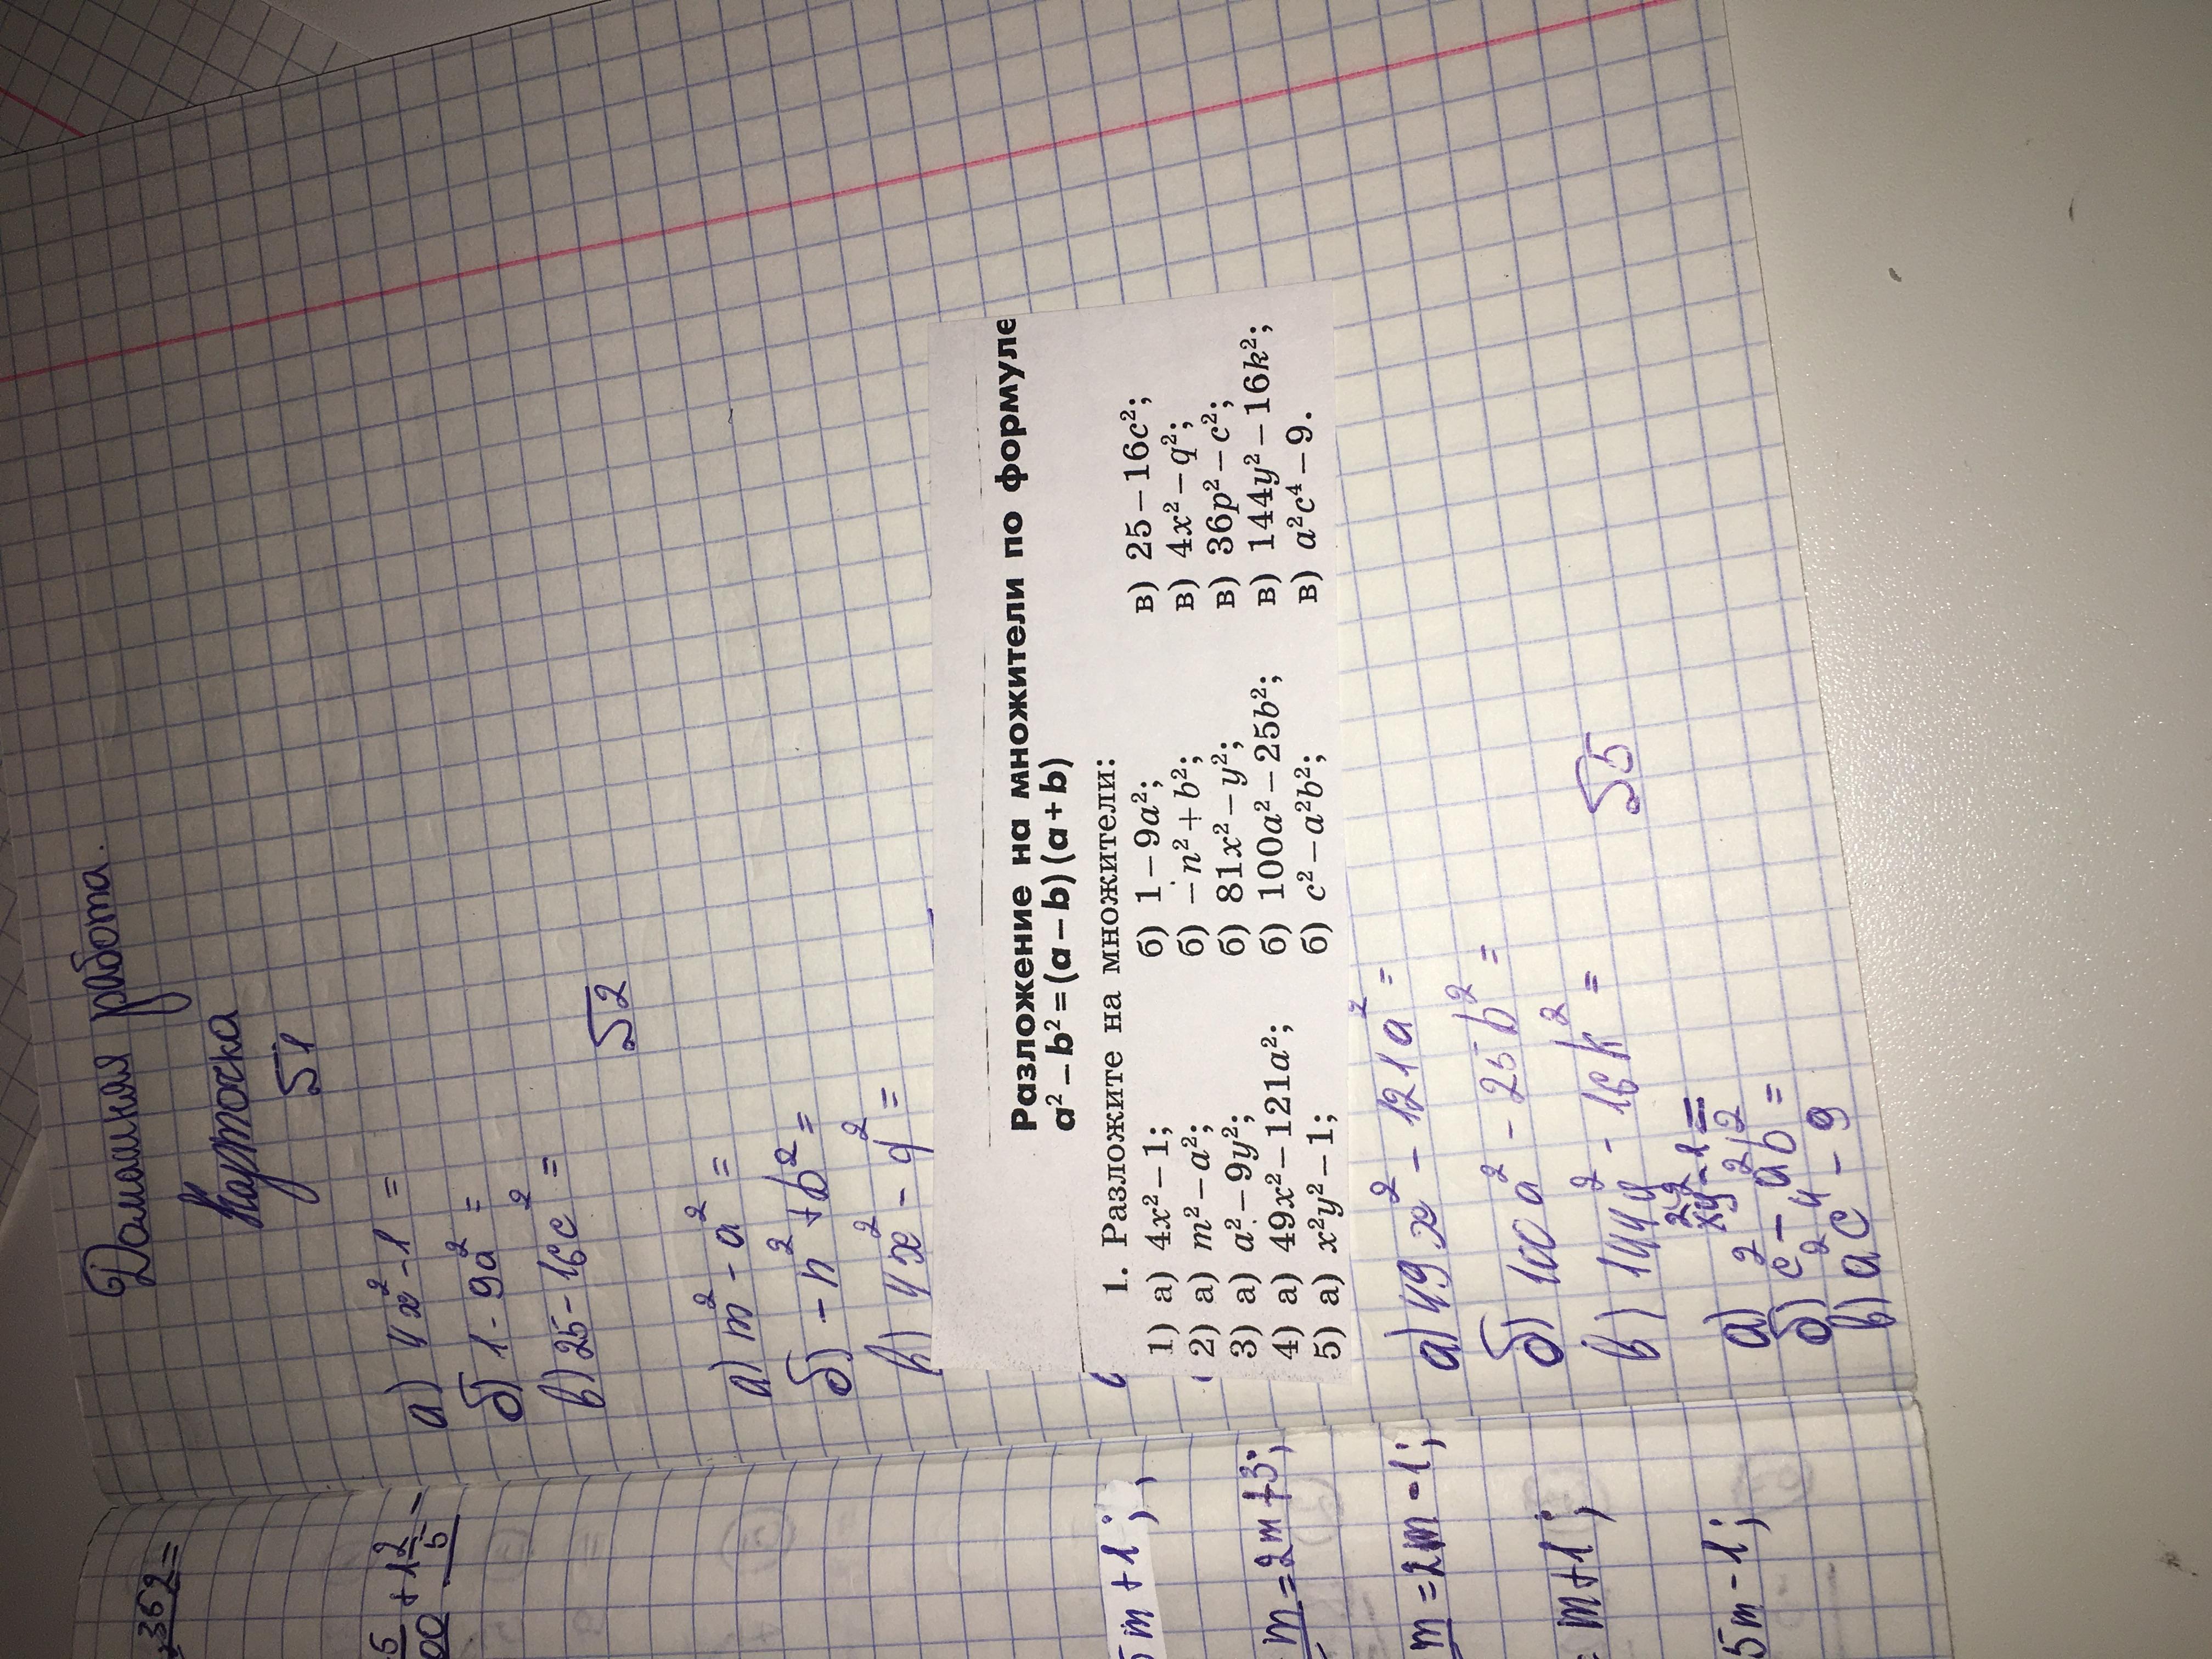 Домашняя работа.
Карточка
№1
а) 4x²-1 =
б) 1-9a² =
в) 25-16c² =
№2
а) m²-a² =
б) -n²+b² =
в) 4x²-q² =
Разложение на множители по формуле
a² – b² = (a – b) (a + b)
1. Разложите на множители:
1) а) 4x² – 1; б) 1 – 9a²; в) 25 – 16c²;
2) а) m² – a²; б) –n² + b²; в) 4x² – q²;
3) а) a² – 9y²; б) 81x² – y²; в) 36p² – c²;
4) а) 49x² – 121a²; б) 100a² – 25b²; в) 144y² – 16k²;
5) а) x²y² – 1; б) c² – a²b²; в) a²c⁴ – 9.
а) 49x² - 121a² =
б) 100a² - 25b² =
в) 144y² - 16k² =
№5
а) x²y²-1=
б) c² - a²b² =
в) a²c⁴ - 9
362=
5/00 + 1 2/5 -
5m+1;
m=2m+3;
m=2m-1;
m+1;
5m-1;